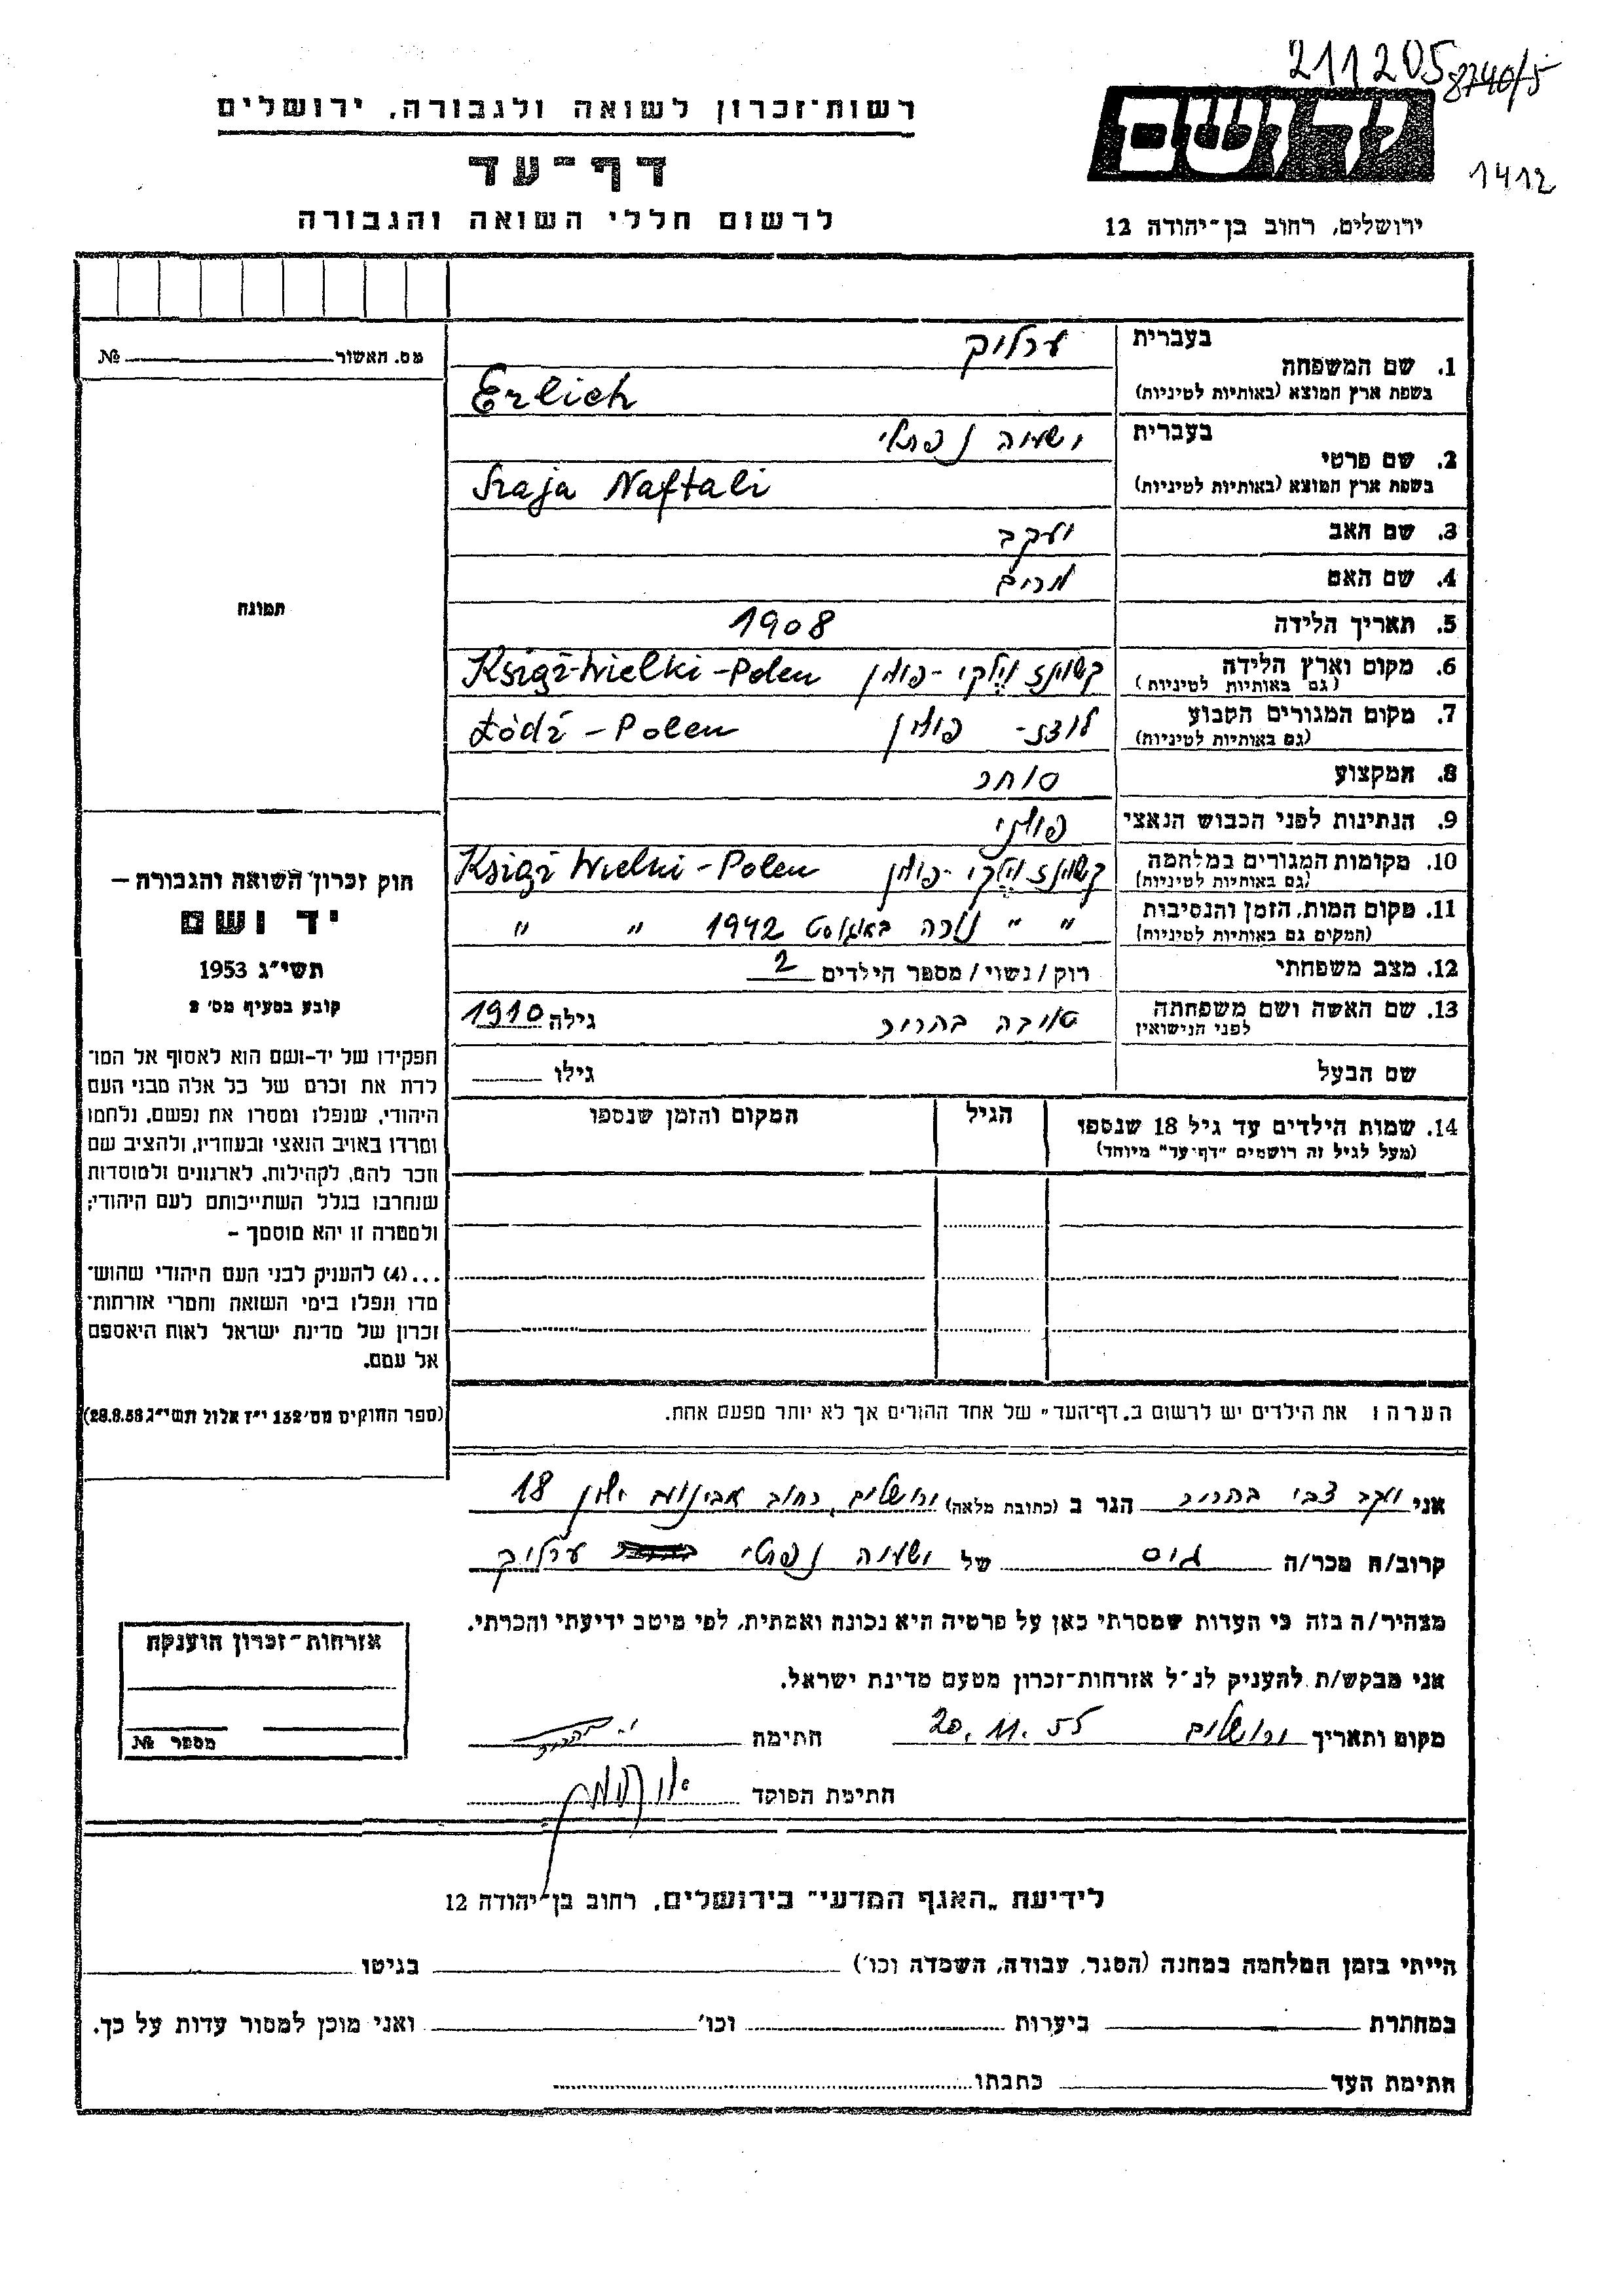 211205
8740/5
יד ושם
1412
ירושלים, רחוב בן־יהודה 12
רשות־זכרון לשואה ולגבורה, ירושלים
דף־עד
לרשום חללי השואה והגבורה
מס. האשור № 
1. שם המשפחה בעברית ערליך
בשפת ארץ המוצא (באותיות לטיניות) Erlich
2. שם פרטי בעברית ישעיה נפתלי
בשפת ארץ המוצא (באותיות לטיניות) Szaja Naftali
3. שם האב יעקב
4. שם האם מרים
תמונה
5. תאריך הלידה 1908
6. מקום וארץ הלידה קשיונז וילקי - פולין Książ-Wielki-Polen
(גם באותיות לטיניות)
7. מקום המגורים הקבוע לודז - פולין Łódź - Polen
(גם באותיות לטיניות)
8. המקצוע סוחר
9. הנתינות לפני הכבוש הנאצי פולני
10. מקומות המגורים במלחמה קשיונז וילקי - פולין Książ Wielki - Polen
(גם באותיות לטיניות)
11. מקום המות, הזמן והנסיבות " " נורה באוגוסט 1942 " "
(המקום גם באותיות לטיניות)
12. מצב משפחתי רוק/נשוי/מספר הילדים 2
13. שם האשה ושם משפחתה טובה בהריר גילה 1910
לפני הנישואין
שם הבעל גילו
14. שמות הילדים עד גיל 18 שנספו הגיל המקום והזמן שנספו
(מעל לגיל זה רושמים "דף־עד" מיוחד)
הערה: את הילדים יש לרשום ב„דף־העד" של אחד ההורים אך לא יותר מפעם אחת.
חוק זכרון השואה והגבורה —
יד ושם
תשי"ג 1953
קובע בסעיף מס' 2
תפקידו של יד-ושם הוא לאסוף אל המו־
לדת את זכרם של כל אלה מבני העם
היהודי, שנפלו ומסרו את נפשם, נלחמו
ומרדו באויב הנאצי ובעוזריו, ולהציב שם
וזכר להם, לקהילות, לארגונים ולמוסדות
שנחרבו בגלל השתייכותם לעם היהודי;
ולמטרה זו יהא מוסמך —
...(4) להעניק לבני העם היהודי שהוש־
מדו ונפלו בימי השואה והמרי אזרחות־
זכרון של מדינת ישראל לאות היאספם
אל עמם.
(ספר החוקים מס' 132 י"ז אלול תשי"ג 28.8.53)
אני יעקב צבי בהריר הגר ב (כתובת מלאה) ירושלים, רחוב אבינועם ילין 18
קרוב/ה מכר/ה גיס של ישעיה נפתלי ערליך
מצהיר/ה בזה כי העדות שמסרתי כאן על פרטיה היא נכונה ואמתית, לפי מיטב ידיעתי והכרתי.
אני מבקש/ת להעניק לנ"ל אזרחות־זכרון מטעם מדינת ישראל.
מקום ותאריך ירושלים 20.11.55 חתימה
חתימת הפוקד
אזרחות־זכרון הוענקה
מספר №
לידיעת „האגף המדעי" בירושלים, רחוב בן־יהודה 12
הייתי בזמן המלחמה במחנה (הסגר, עבודה, השמדה וכו') בגיטו
במחתרת ביערות וכו' ואני מוכן למסור עדות על כך.
חתימת העד כתבתו